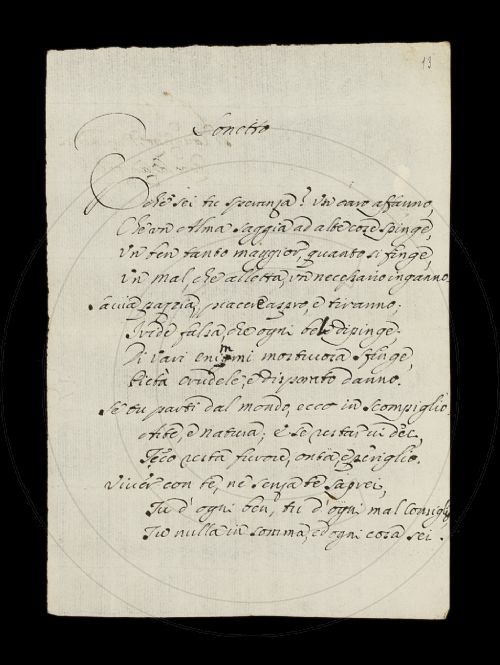 13
Sonetto
O che sei tu speranza? Un caro affanno,
Che un Alma saggia ad alte cose spinge,
Un ben tanto maggior, quanto si finge,
Un mal, che alletta, un necessario inganno.
Savia pazzia, piacer aspro, e tiranno;
Iride falsa, che ogni bel dipinge;
Di vari enimmi mostruosa sfinge,
Pietà crudele, e disperato danno.
Se tu parti dal mondo, ecco in scompiglio
Arte, e natura; e se restar vi dei,
Teco resta furore, onta, e periglio.
Viver con te, ne senza te saprei,
Tu d'ogni ben, tu d'ogni mal consigli
Tu nulla in somma, ed ogni cosa sei.